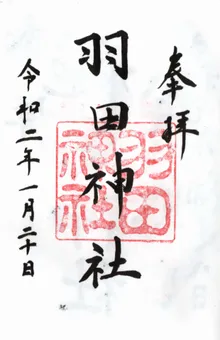 奉拝
羽田神社
羽田神社
令和二年一月二十日